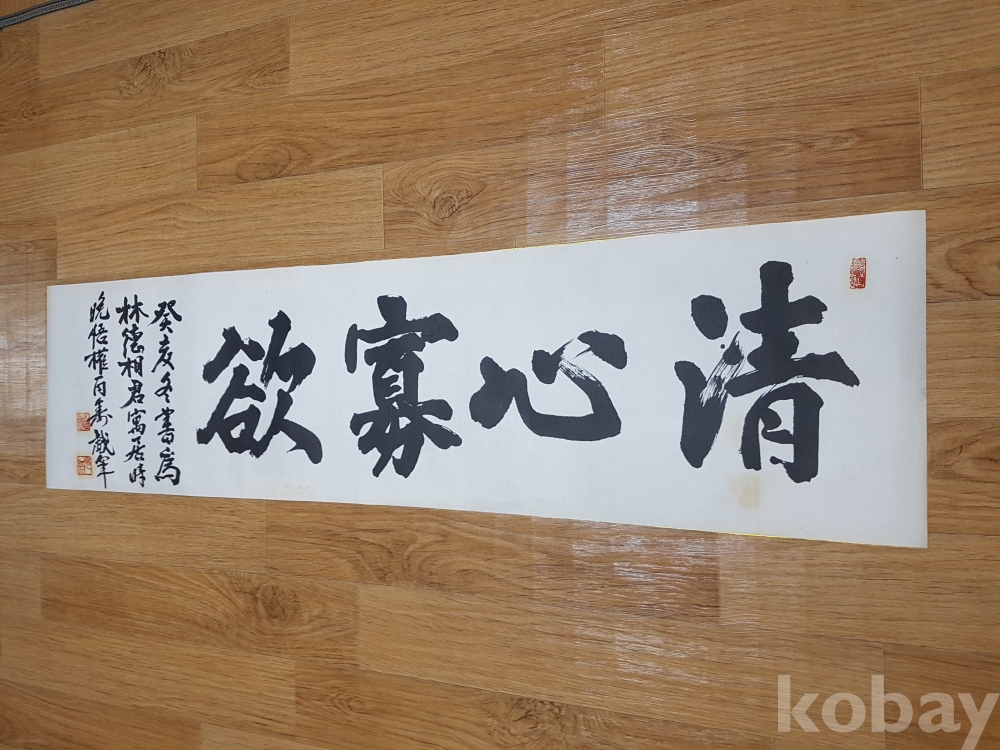 清心寡欲
癸亥冬書爲
林德相君寓居時
晩悟權丙
kobay